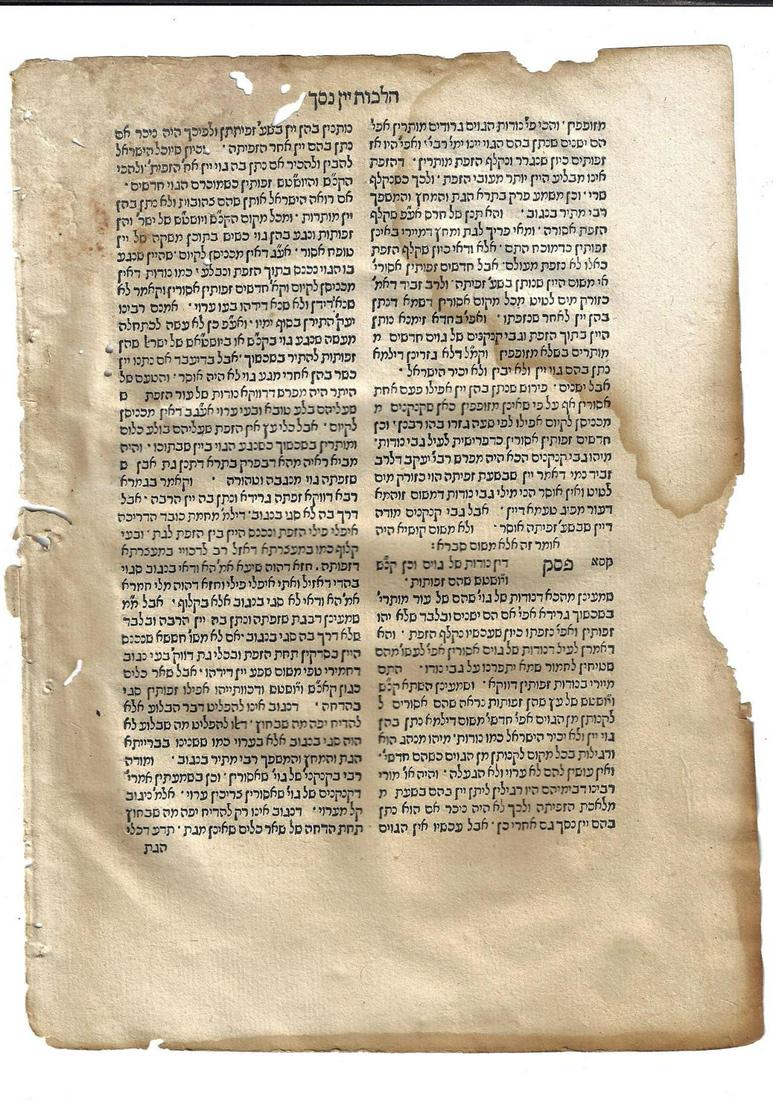 הלכות יין נסך
מזופפין · והכי פי׳ נודות הגוים גרודים מותרין אפי׳
הם ישנים שנתן בהם הגוי יינו ימי׳ רבי׳ ואפי׳ היו אז
זפותים כיון שנגרר ונקלף הזפת מותרין · דהזפת
אינו מבליע היין יותר מעובי הזפת · ולכך כשנקלף
שרי · וכן משמע פרק בתרא הגת והמחץ והמשפך
רבי מתיר בנגוב · והא תנן של חרס אע״פ שקלף
הזפת אסורה · ומאי פריך לגת ומחץ דמיירי באינן
זפותין כדמוכח התם · אלא ודאי כיון שקלף הזפת
כאלו לא נזפת מעולם · אבל חדשים זפותין אסורי׳
אי משום היין שנותן בשע׳ זפיתה · ולרב זביד דאמ׳
כזורק מים לטיט מכל מקום אסורין דשמא דנתן
בהן יין לאחר שנזפתו · ואפי׳ בחדא זימנא נותן
היין בתוך הזפת וגבי קנקנים של גוים חדשים מ
מותרים בשלא מזופפין וקמ״ל דלא גזרינן דילמא
נתן בהם גוי יין ולא יבין ולא יכיר הישראל ·
אבל ישנים · פירוש שנתן בהן יין אפילו פעם אחת
אסורין אף על פי שאינן מזופפין כאן שקנקנים מ
מכניסן לקיום אפילו לפי שעה גזרו בהו רבנן · וכן
חדשים זפותין אסורין כדפרישית לעיל גבי נודות ·
מיהו גבי קנקנים הכא היה מפרש רבי׳ יעקב דלרב
זביד נמי דאמר יין שבשעת זפיתה הוי כזורק מים
לטיט ואין אוסר הני מילי גבי נודות דמשום זוהמא
דעור מפיג טעמא דיין · אבל גבי קנקנים מודה
דיין שבשע׳ זפיתה אוסר · ולא משום קושיא היה
אומר זה אלא משום סברא :
קסא פסק דין נודות של גוים וכן קנ״ש
ויושטש שהם זפותות ·
שמעינן מהכא דנודות של גוי שהם של עור מותרי׳
בשכשוך גרידא אפי׳ אם הם ישנים ובלבד שלא יהו
זפותין ואפי׳ נזפתו כיון שעכשיו נקלף הזפת · והא
דאמרן לעיל דנודות של גוים אסורין אפי׳ לעשו׳ מהם
שטיחין לחמור שמא יתפרנו על גבי נודו · התם
מיירי בנודות זפותין דווקא · ושמעינן השתא קנ״ש
ויושטש של עץ שהן זפותות נראה שהם אסורים ל
לקנותן מן הגוים אפי׳ חדשי׳ משום דילמא נתן בהן
גוי יין ולא יכיר הישראל כמו נודות · מיהו מנהג הוא
ורגילות בכל מקום לקנותן מן הגוים כשהם חדשי׳ ·
ואין עושין להם לא ערוי ולא הגעלה · והיה או׳ מורי
רבינו דבימיהם היו רגילין ליתן יין בהם בשעת מ
מלאכת הזפיתה ולכך לא היה ניכר אם הוא נתן
בהם יין נסך גם אחרי כן · אבל עכשיו אין הגוים
נותנין בהן יין בשע׳ זפיתתן ולפיכך היה ניכר אם
נתן בהם יין אחר הזפיתה · וכיון שיוכל הישראל
להבין ולהכיר אם נתן בה גוי יין אח׳ הזפית׳ · ולהכי
הקנ״ש והיושטש זפותין כשמוכרם הגוי חדשים ·
אם רואה הישראל אותן שהם צהובות ולא נתן בהן
יין מותרות · ומכל מקום הקנ״ש ויושטש של ישר׳ והן
זפותות ונגע בהן גוי כשיש בתוכן משקה של יין
טופח אסור · אע״ג דאין מכניסן לקיום · שהיין שנגע
בו הגוי נכנס בתוך הזפת ונבלע · כמו נודות דאין
מכניסן לקיום וקא׳ חדשים זפותין אסורין וקאמר לא
שנא דידן ולא שנא דידהו בעו ערוי · אמנם רבינו
יעק׳ התירן בסוף ימיו · ואע״פ כן לא עשה לכתחלה
מעשה שנגע גוי בקנ״ש או ביושטא״ש של ישר׳ שהן
זפותות להתיר בשכשוך · אבל בדיעבד אם נתנו יין
כשר בהן אחרי מגע גוי לא היה אוסר · והטעם של
היתר היה מפרש דדווקא נודות של עור הזפת ש
שעליהם בלע טובא ובעי ערוי אע״ג דאין מכניסן
לקיום · אבל כלי עץ אין הזפת שעליהם בולע כלום
ומותרין בשכשוך כשנגע הגוי ביין שבתוכו · והיה
מביא ראיה מהא דבפרק בתרא דתנן גת אבן ש
שזפתה גוי מנגבה וטהורה · וקאמר בגמרא
רבא דווקא זפתה גרידא ונתן בה יין הרבה · אבל
דרך בה לא סגי בנגוב · דילמ׳ מחמת כובד הדריכה
איפלי פילי הזפת ונכנס היין בין הזפת לגת · ובעי
קלוף כמו במעצרתא דאזל רב לדכויי במעצרתא
דזפותה · חזא דהוה שיעא אמ׳ הא ודאי בנגוב סגוי
בהדי דאזיל ואתי איפלי פילי וחזא דהוה מלי חמרא
אמ׳ הא ודאי לא סגי בנגוב אלא בקלוף · אבל מ״מ
שמעינן דבגת שזפתה ונתן בה יין הרבה ובלבד
שלא דרך בה סגי בנגוב · אם לא משו׳ חששא שנכנס
היין בסדקין תחת הזפת ובכלי גת דווק׳ בעי נגוב
דחמירי טפי משום שפע יין דידהו · אבל שאר כלים
כגון קאנ״ש ויושטש ודכוותייהו אפילו זפותין סגי
בהדחה · דנגוב אינו להפליט דבר הבלוע אלא
להדיח יפה מה שבחוץ · דאו להפליט מה שבלוע לא
הוה סגי בנגוב אלא בערוי כמו ששנינו בברייתא
הגת והמחץ והמשפך רבי מתיר בנגוב · ומודה
רבי בקנקני׳ של גוי שאסורין · וכן בשמעתין אמרי׳
דקנקנים של גוי שאסורין צריכין ערוי · אלמ׳ ניגוב
קל מערוי · דנגוב אינו רק להדיח יפה מה שבחוץ
תחת הדחה של שאר כלים שאינן מגת · תדע דכלי
הגת